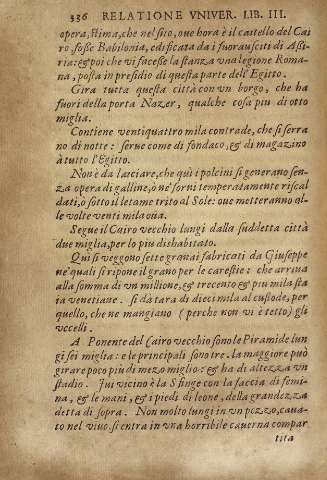 336 RELATIONE VNIVER. LIB. III.
opera, stima, che nel sito, oue hora è il castello del Cai
ro, fosse Babilonia, edificata da i fuorausciti di Assi
ria: & poi che vi facesse la stanza vna legione Roma-
na, posta in presidio di questa parte dell'Egitto.
Gira tutta questa città con vn borgo, che ha
fuori della porta Nazer, qualche cosa piu di otto
miglia.
Contiene ventiquattro mila contrade, che si serra
no di notte: serue come di fondaco, & di magazino
à tutto l'Egitto.
Non è da lasciare, che quì i polcini si generano sen-
za opera di galline, ò ne' forni temperatamente riscal
dati, ò sotto il letame trito al Sole: oue metteranno al-
le volte venti mila oua.
Segue il Cairo vecchio lungi dalla suddetta città
due miglia, per lo piu dishabitato.
Qui si veggono sette granai fabricati da Giuseppe
ne' quali si ripone il grano per le carestie: che arriua
alla somma di vn millione, & trecento & piu mila sta
ia venetiane. si dà tara di dieci mila al custode, per
quello, che ne mangiano (perche non vi è tetto) gli
vccelli.
A Ponente del Cairo vecchio sono le Piramide lun
gi sei miglia: e le principali sono tre. la maggiore può
girare poco più di mezo miglio: & ha di altezza vn
stadio. Iui vicino è la Sfinge con la faccia di femi-
na, & le mani, & i piedi di leone, della grandezza
detta di sopra. Non molto lungi in vn pozzo, caua-
to nel viuo, si entra in vna horribile cauerna compar
tita